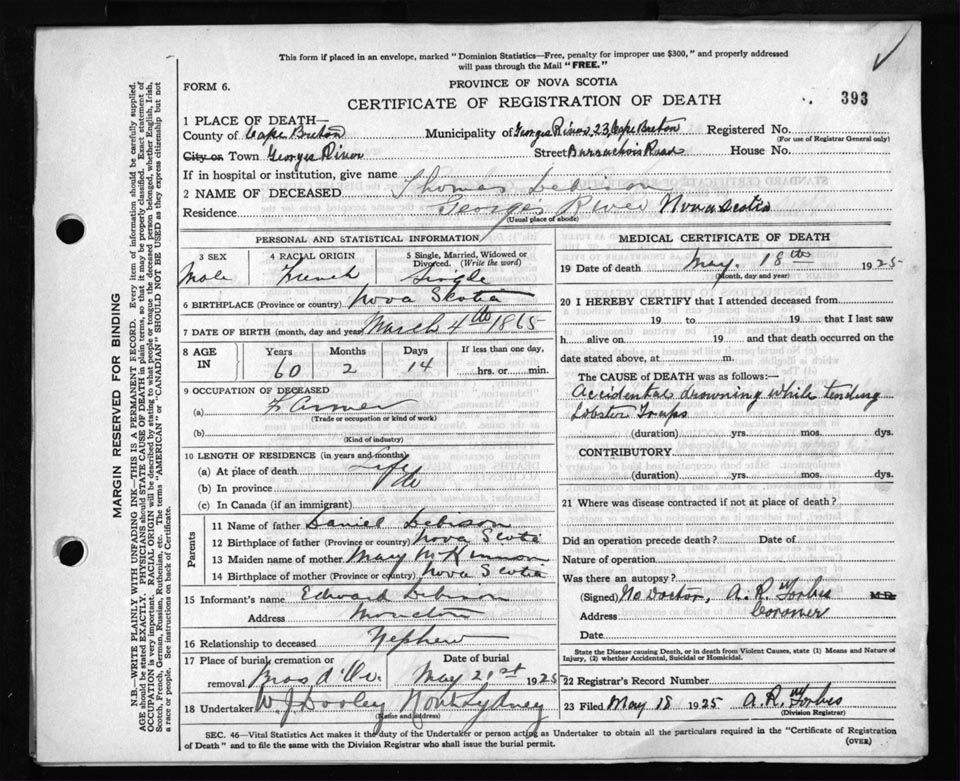 This form if placed in an envelope, marked "Dominion Statistics—Free, penalty for improper use $300," and properly addressed
will pass through the Mail "FREE."
FORM 6.
PROVINCE OF NOVA SCOTIA
CERTIFICATE OF REGISTRATION OF DEATH
393
1 PLACE OF DEATH—
County of Cape Breton Municipality of Georges River 23, Cape Breton Registered No.
(For use of Registrar General only)
City or Town Georges River Street Barrachois Road House No.
If in hospital or institution, give name
2 NAME OF DECEASED Thomas Lebison
Residence George's River Nova Scotia
(Usual place of abode)
PERSONAL AND STATISTICAL INFORMATION
3 SEX
Male
4 RACIAL ORIGIN
French
5 Single, Married, Widowed or
Divorced. (Write the word)
Single
6 BIRTHPLACE (Province or country) Nova Scotia
7 DATE OF BIRTH (month, day and year) March 4th 1865
8 AGE
IN
Years
60
Months
2
Days
14
If less than one day,
hrs. or min.
9 OCCUPATION OF DECEASED
(a) Farmer
(Trade or occupation or kind of work)
(b)
(Kind of industry)
10 LENGTH OF RESIDENCE (in years and months)
(a) At place of death Life
(b) In province do
(c) In Canada (if an immigrant)
Parents
11 Name of father Daniel Lebison
12 Birthplace of father (Province or country) Nova Scotia
13 Maiden name of mother Mary McKinnon
14 Birthplace of mother (Province or country) Nova Scotia
15 Informant's name Edward Lebison
Address Moncton
16 Relationship to deceased Nephew
17 Place of burial, cremation or
removal Bras d'Or.
Date of burial
May 21st 1925
18 Undertaker W. J. Dooley North Sydney
(Name and address)
MEDICAL CERTIFICATE OF DEATH
19 Date of death May. 18th 1925
(Month, day and year)
20 I HEREBY CERTIFY that I attended deceased from
19 to 19 that I last saw
h alive on 19 and that death occurred on the
date stated above, at m.
The CAUSE OF DEATH was as follows:—
Accidental drowning while tending
Lobster Traps
(duration) yrs. mos. dys.
CONTRIBUTORY
(duration) yrs. mos. dys.
21 Where was disease contracted if not at place of death?
Did an operation precede death? Date of
Nature of operation
Was there an autopsy?
(Signed) No Doctor, A. R. Forbes M.D.
Address Coroner
Date
State the Disease causing Death, or in death from Violent Causes, state (1) Means and Nature of
Injury, (2) whether Accidental, Suicidal or Homicidal.
22 Registrar's Record Number
23 Filed May 18 1925 A. R. Forbes
(Division Registrar)
SEC. 46—Vital Statistics Act makes it the duty of the Undertaker or person acting as Undertaker to obtain all the particulars required in the "Certificate of Registration
of Death" and to file the same with the Division Registrar who shall issue the burial permit.
(OVER)
MARGIN RESERVED FOR BINDING
N.B.—WRITE PLAINLY WITH UNFADING INK—THIS IS A PERMANENT RECORD. Every item of information should be carefully supplied.
AGE should be stated EXACTLY. PHYSICIANS should STATE CAUSE OF DEATH in plain terms, so that it may be properly classified. Exact statement of
OCCUPATION is very important. RACIAL ORIGIN will be described by stating to what people or tongue the deceased person belonged, whether English, Irish,
Scotch, French, German, Russian, Ruthenian, etc. The terms "AMERICAN" or "CANADIAN" SHOULD NOT BE USED as they express citizenship but not
a race or people. See instructions on back of Certificate.